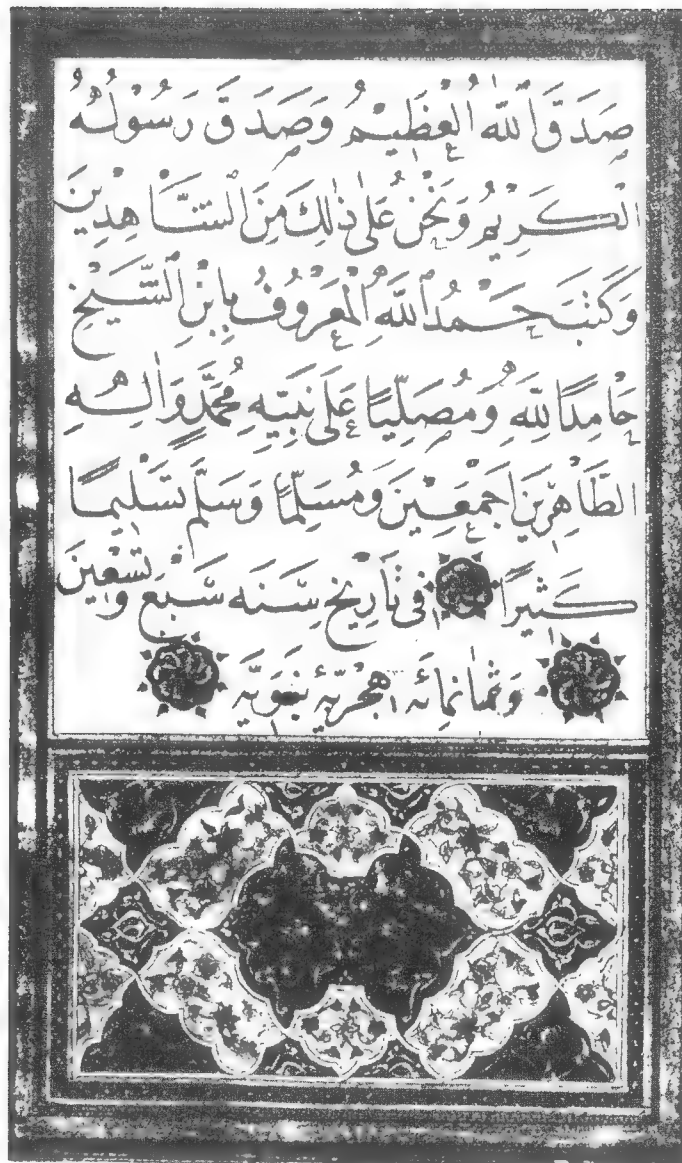 صَدَقَ ٱللّٰهُ الْعَظِيمُ وَصَدَقَ رَسُولُهُ
الْكَرِيْمُ وَنَحْنُ عَلٰى ذٰلِكَ مِنَ الشَّاهِدِيْنَ
وَكَتَبَ حَمْدُ ٱللّٰهِ الْمَعْرُوفُ بِابْنِ الشَّيْخِ
حَامِدًا لِلّٰهِ وَمُصَلِّيًا عَلٰى نَبِيِّهِ مُحَمَّدٍ وَاٰلِهِ
الطَّاهِرِيْنَ اَجْمَعِيْنَ وَمُسَلِّمًا وَسَلَّمَ تَسْلِيمًا
كَثِيْرًا فِى تَارِيْخِ سَنَه سَبْعٍ وَتِسْعِيْنَ
وَثَمَانمِائَه هِجْرِيَّه نَبَوِيَّه